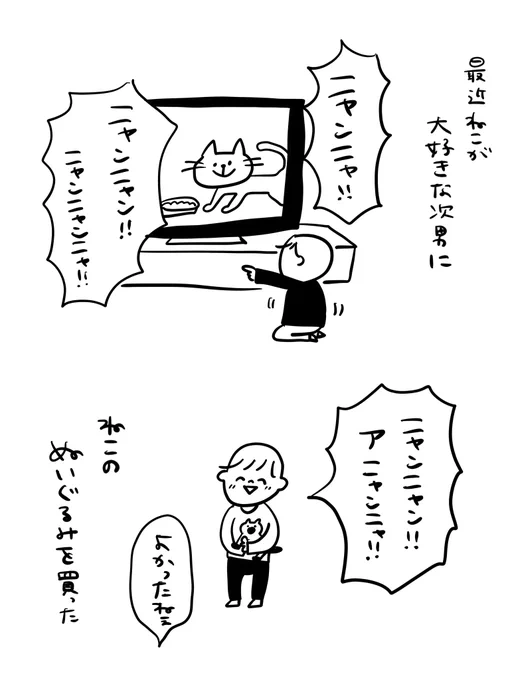 最近ねこが
大好きな次男に
ニャンニャ!!
ニャンニャン!!
ニャンニャンニャ!!
ニャンニャン!!
ア ニャンニャ!!
よかったねェ
ねこの
ぬいぐるみを買った